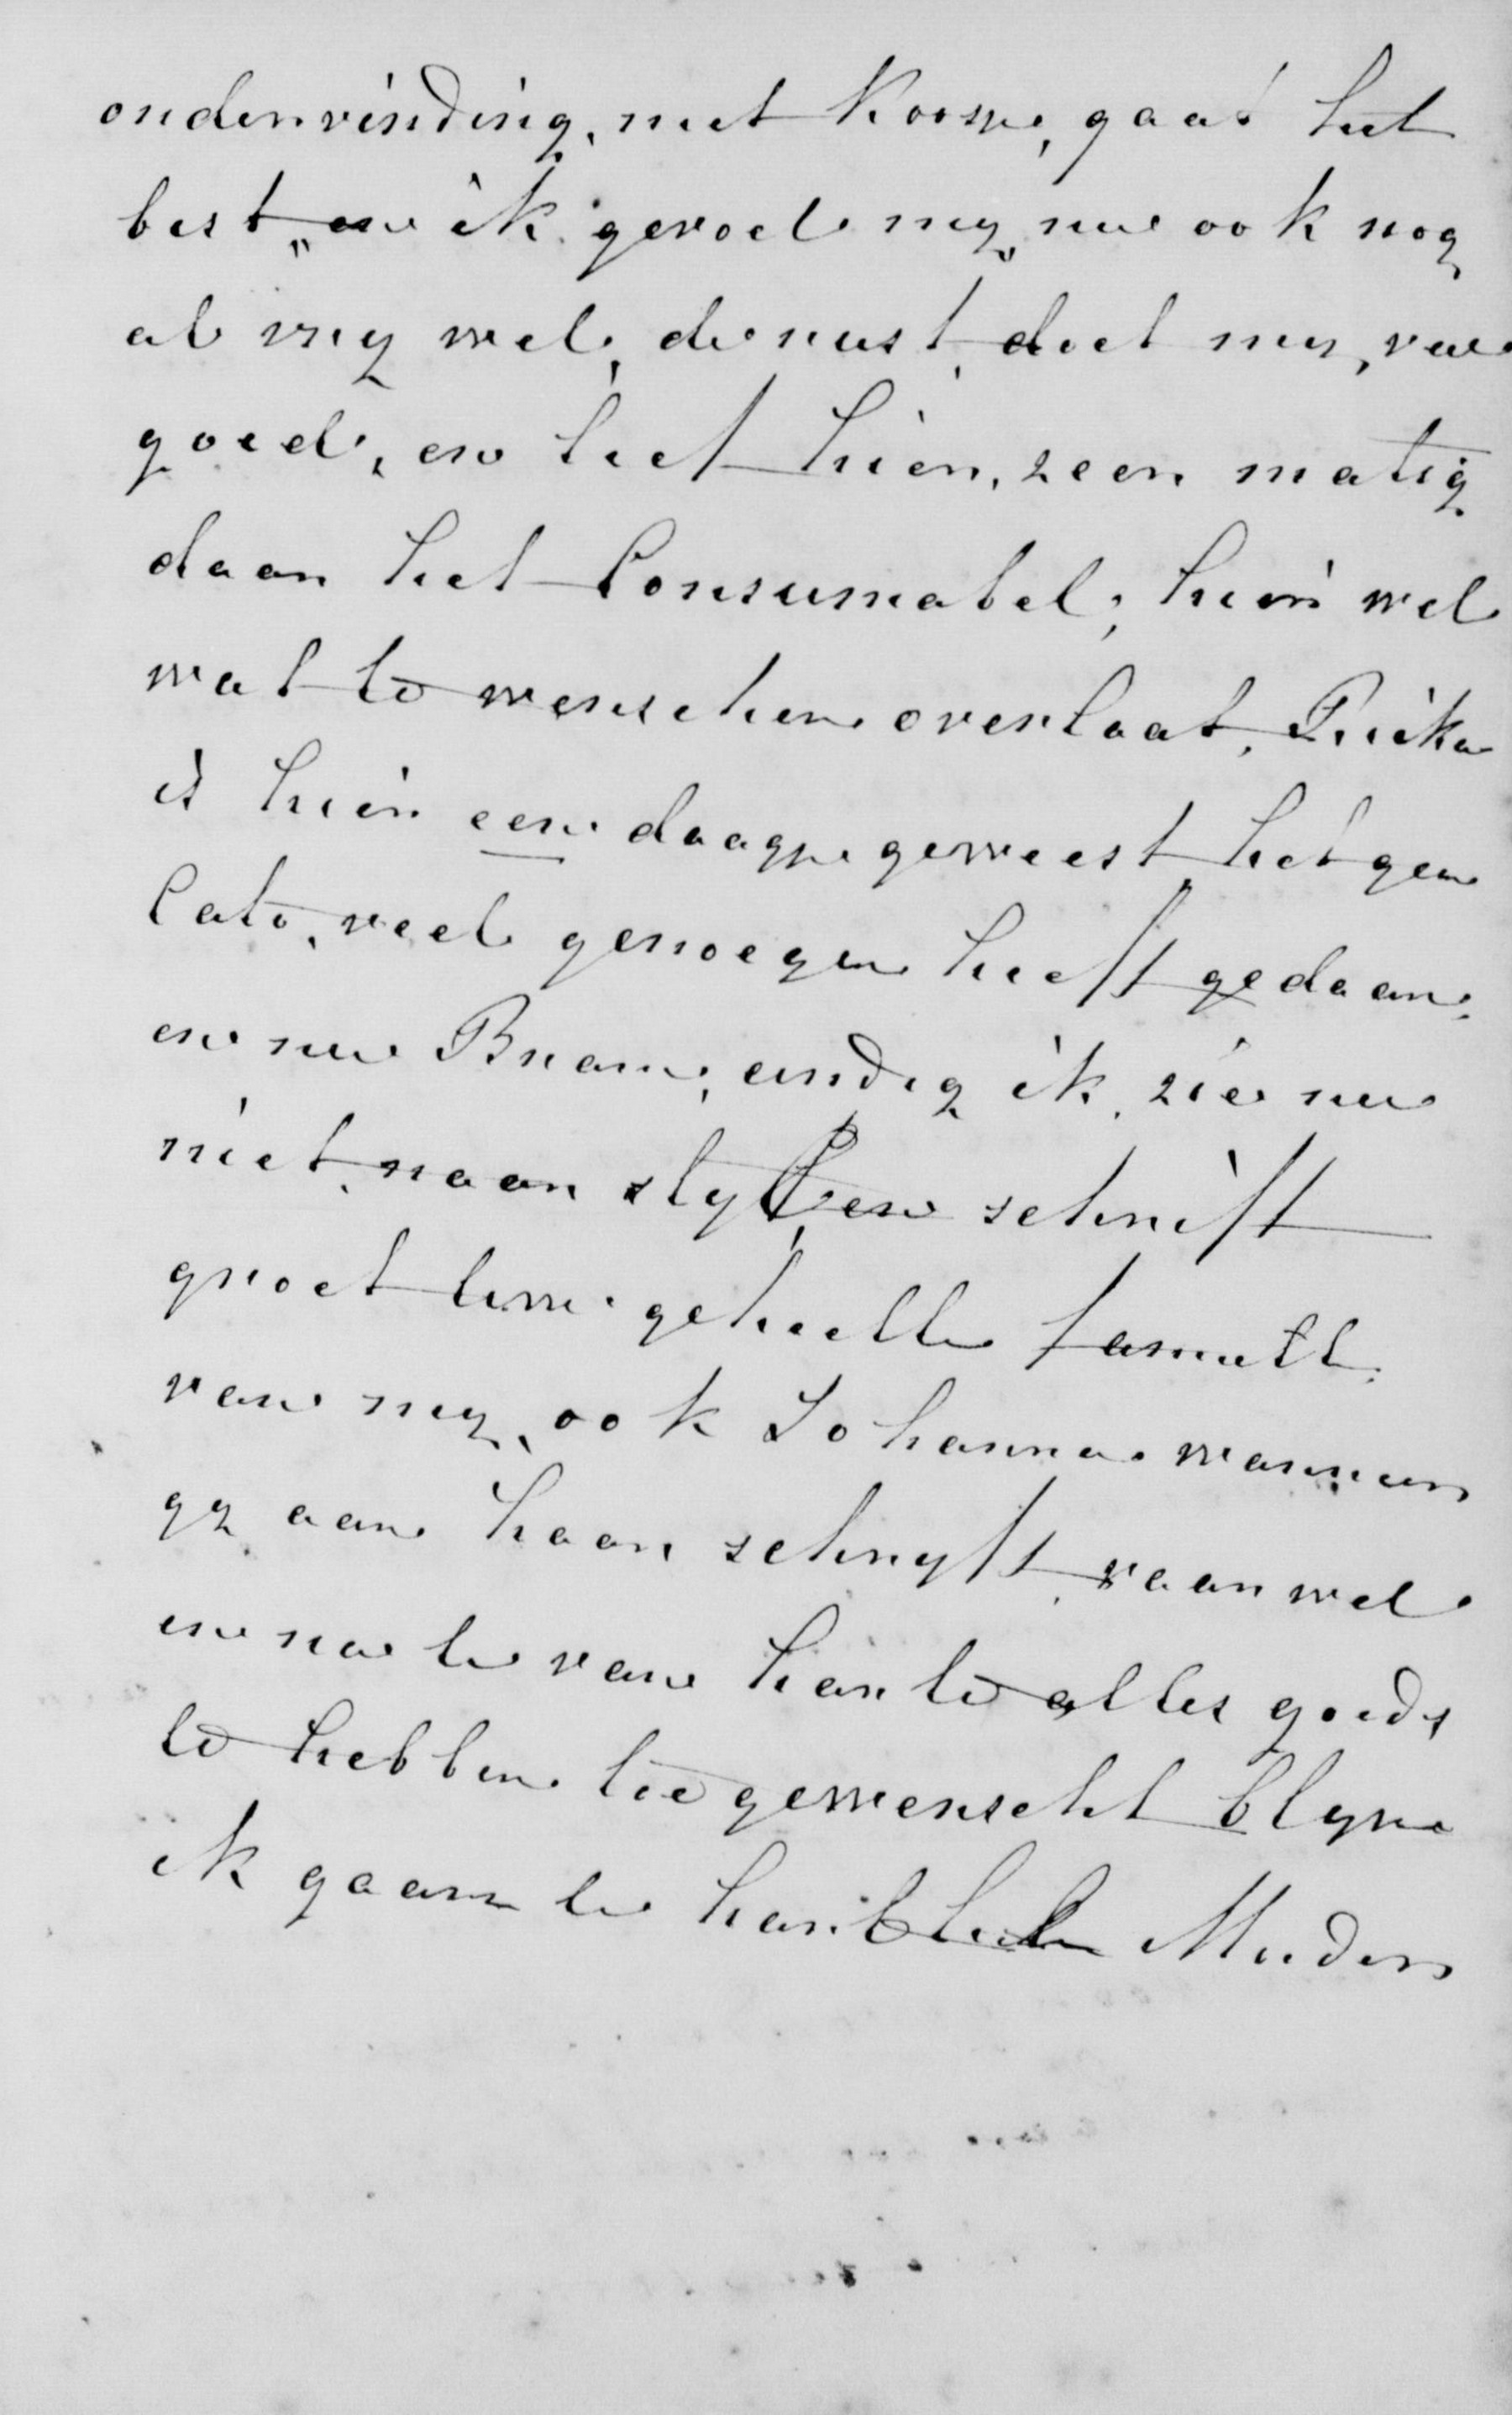 ondervinding, met Koosje, gaat het
best, en ik gevoel my, nu ook nog
al vry wel, de rust, doet my, veel
goed, en leef hier, zeer matig
daar het Consumabel, hier wel
wat te wenschen overlaat, Rika
is hier een daagje geweest hetgeen
Cato, veel genoegen heeft gedaan,
en nu Bram, eindig ik, zie nu
niet, naar styl, en schrift
groet uwe geheelle famielle,
van my, ook Johanna wanneer
gy aan haar schryft, vaarwel
en na U van harte alles goeds
te hebben toegewenscht blyve
ik gaarne Uw hartel Moeder